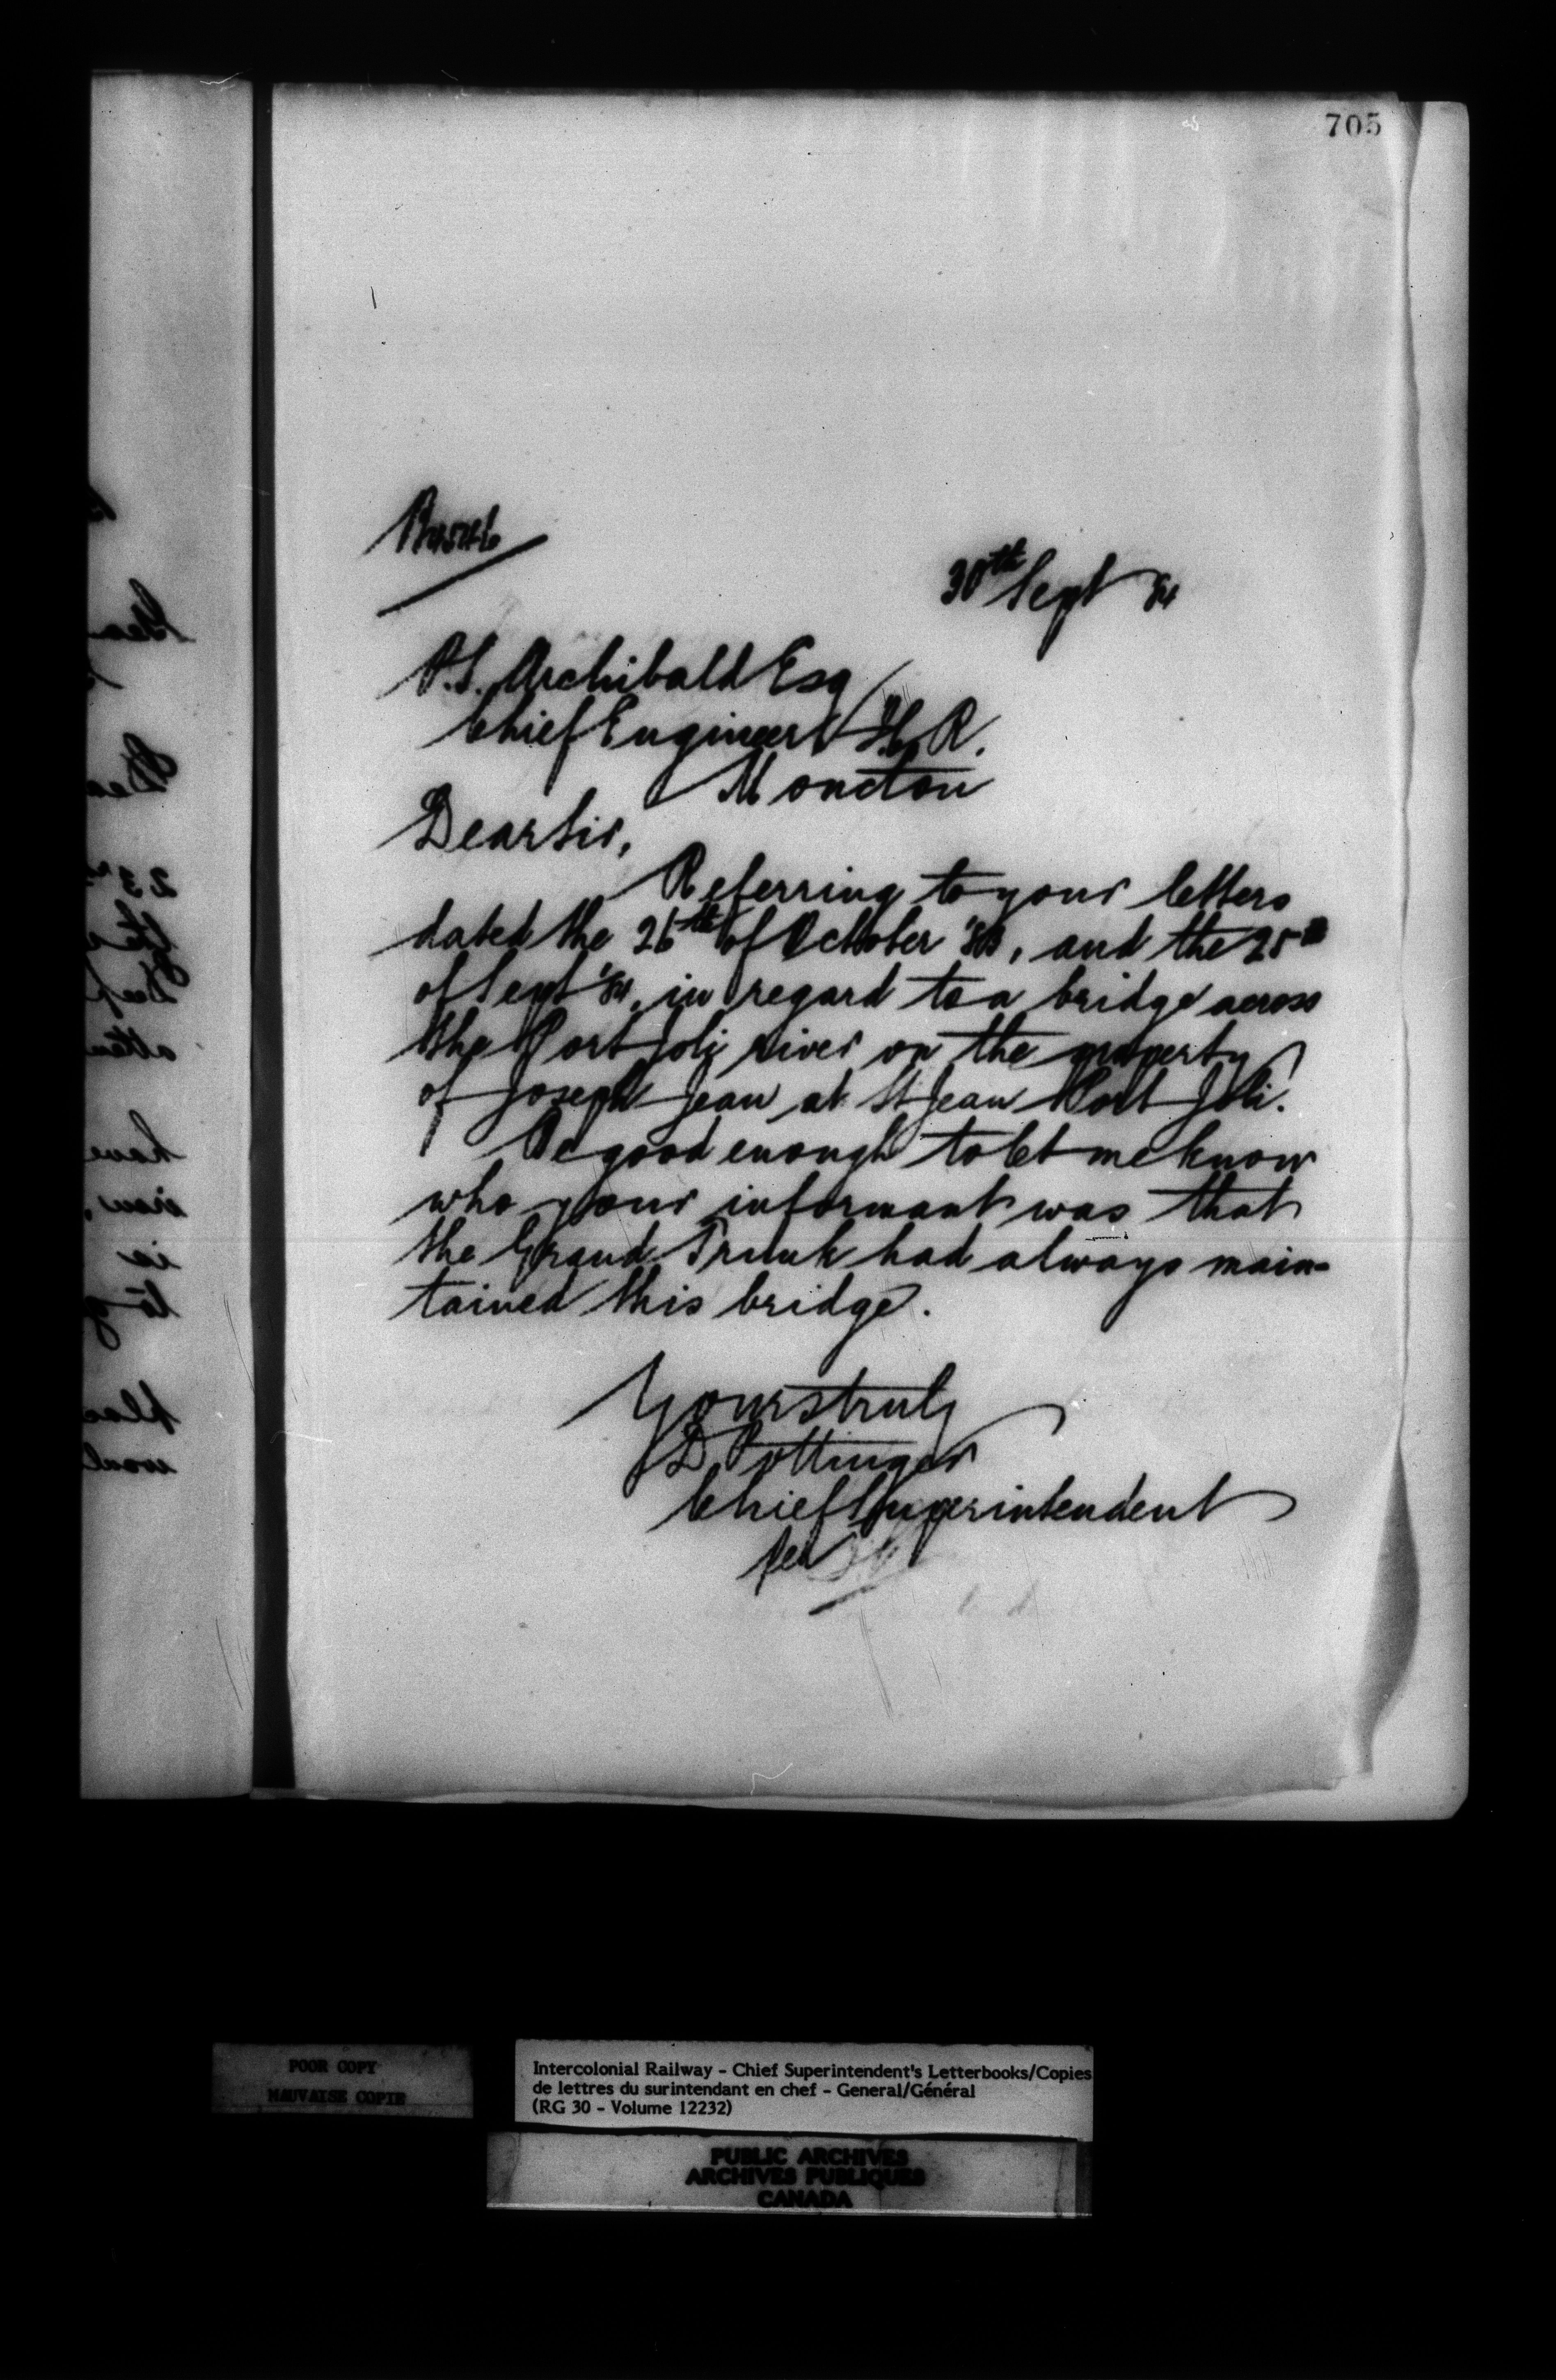 705
30th Sept '84
P.S. Archibald Esq
Chief Engineer I.C.R.
Moncton
Dear Sir,
Referring to your letters
dated the 26th of October '83, and the 25th
of Sept '84, in regard to a bridge across
the Port Joli river on the property
of Joseph Jean at St Jean Port Joli.
Be good enough to let me know
who your informant was that
the Grand Trunk had always main-
tained this bridge.
Yours truly
D Pottinger
Chief Superintendent
per
POOR COPY
MAUVAISE COPIE
Intercolonial Railway - Chief Superintendent's Letterbooks/Copies
de lettres du surintendant en chef - General/Général
(RG 30 - Volume 12232)
PUBLIC ARCHIVES
ARCHIVES PUBLIQUES
CANADA